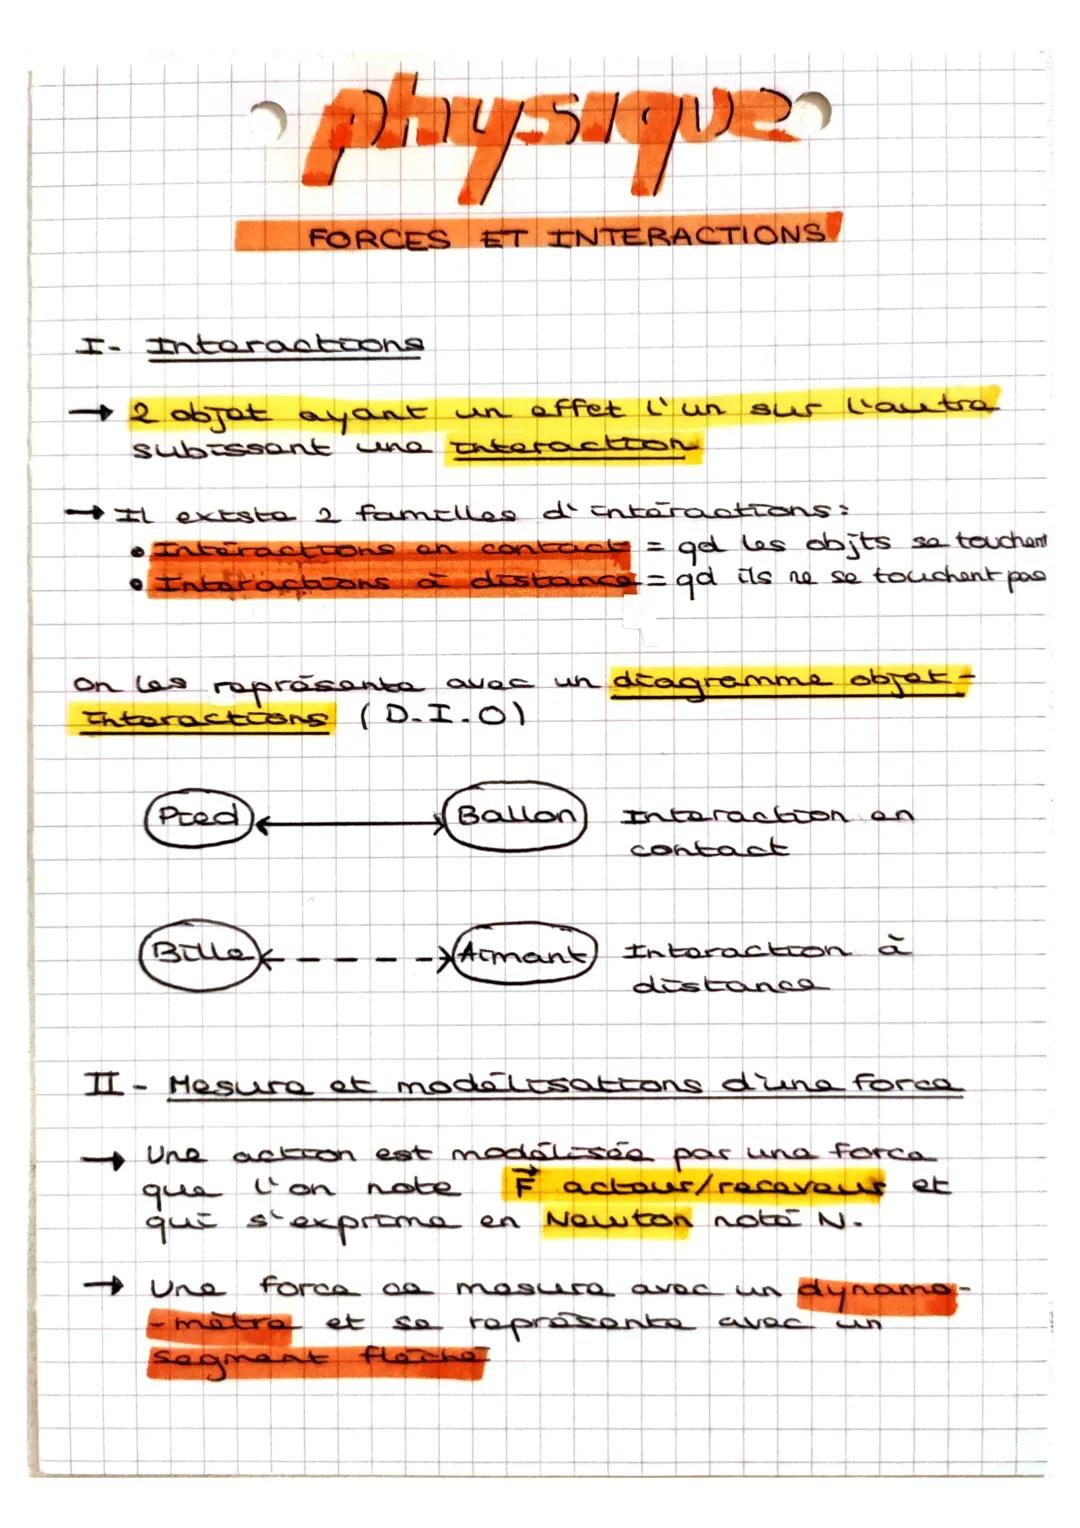 physique
FORCES ET INTERACTIONS
I- Interactions
→ 2 objet ayant un effet l'un sur l'autre
subissent une interaction
→ Il existe 2 familles d'intéractions:
• Intéractions en contact = qd les objts se touchent
• Interactions à distance = qd ils ne se touchent pas
On les représente avec un diagramme objet-
interactions (D.I.O)
Pied Ballon Interaction en
contact
Bille Aimant Interaction à
distance
II- Mesure et modélisations d'une force
→ Une action est modélisée par une force
que l'on note F⃗ acteur/receveur et
qui s'exprime en Newton noté N.
→ Une force se mesure avec un dynamo-
-mètre et se représente avec un
segment fléché